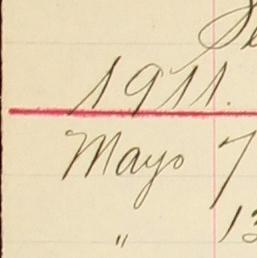 1911.
Mayo 7
" 13